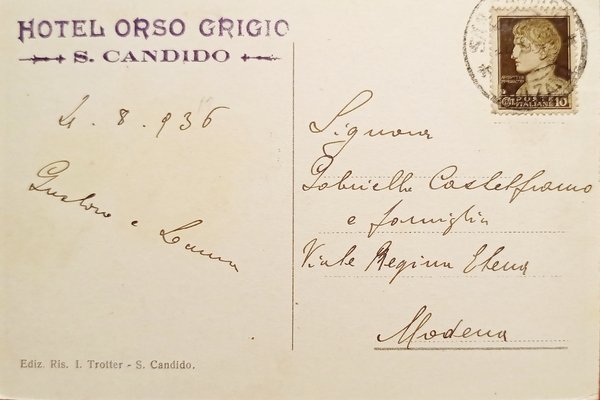 HOTEL ORSO GRIGIO
S. CANDIDO
4. 8. 936
Gustavo e
Ediz. Ris. I. Trotter - S. Candido.
POSTE
ITALIANE 10
Signora
Gabriella Castelfranco
e famiglia
Viale Regina Elena
Modena